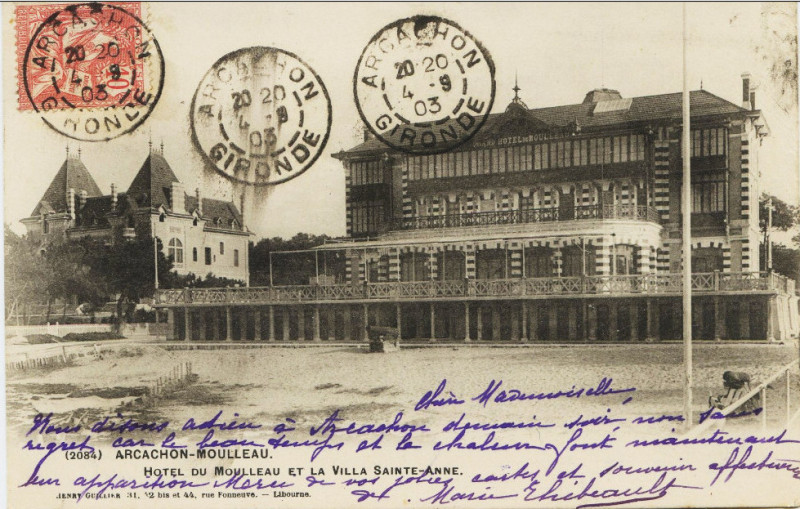 ARCACHON
20 20
4 - 9
03
GIRONDE
ARCACHON
20 20
4 - 9
03
GIRONDE
ARCACHON
20 20
4 - 9
03
GIRONDE
10
HOTEL DU MOULLEAU
Chère Mademoiselle,
Nous disons adieu à Arcachon demain soir, non sans
regret car le beau temps et la chaleur font maintenant
leur apparition Merci de vos jolies cartes et souvenir affectueux
de Marie Thiébeault
(2084) ARCACHON-MOULLEAU.
HOTEL DU MOULLEAU ET LA VILLA SAINTE-ANNE.
HENRY GUILLIER 31, 42 bis et 44, rue Fonneuve. — Libourne.